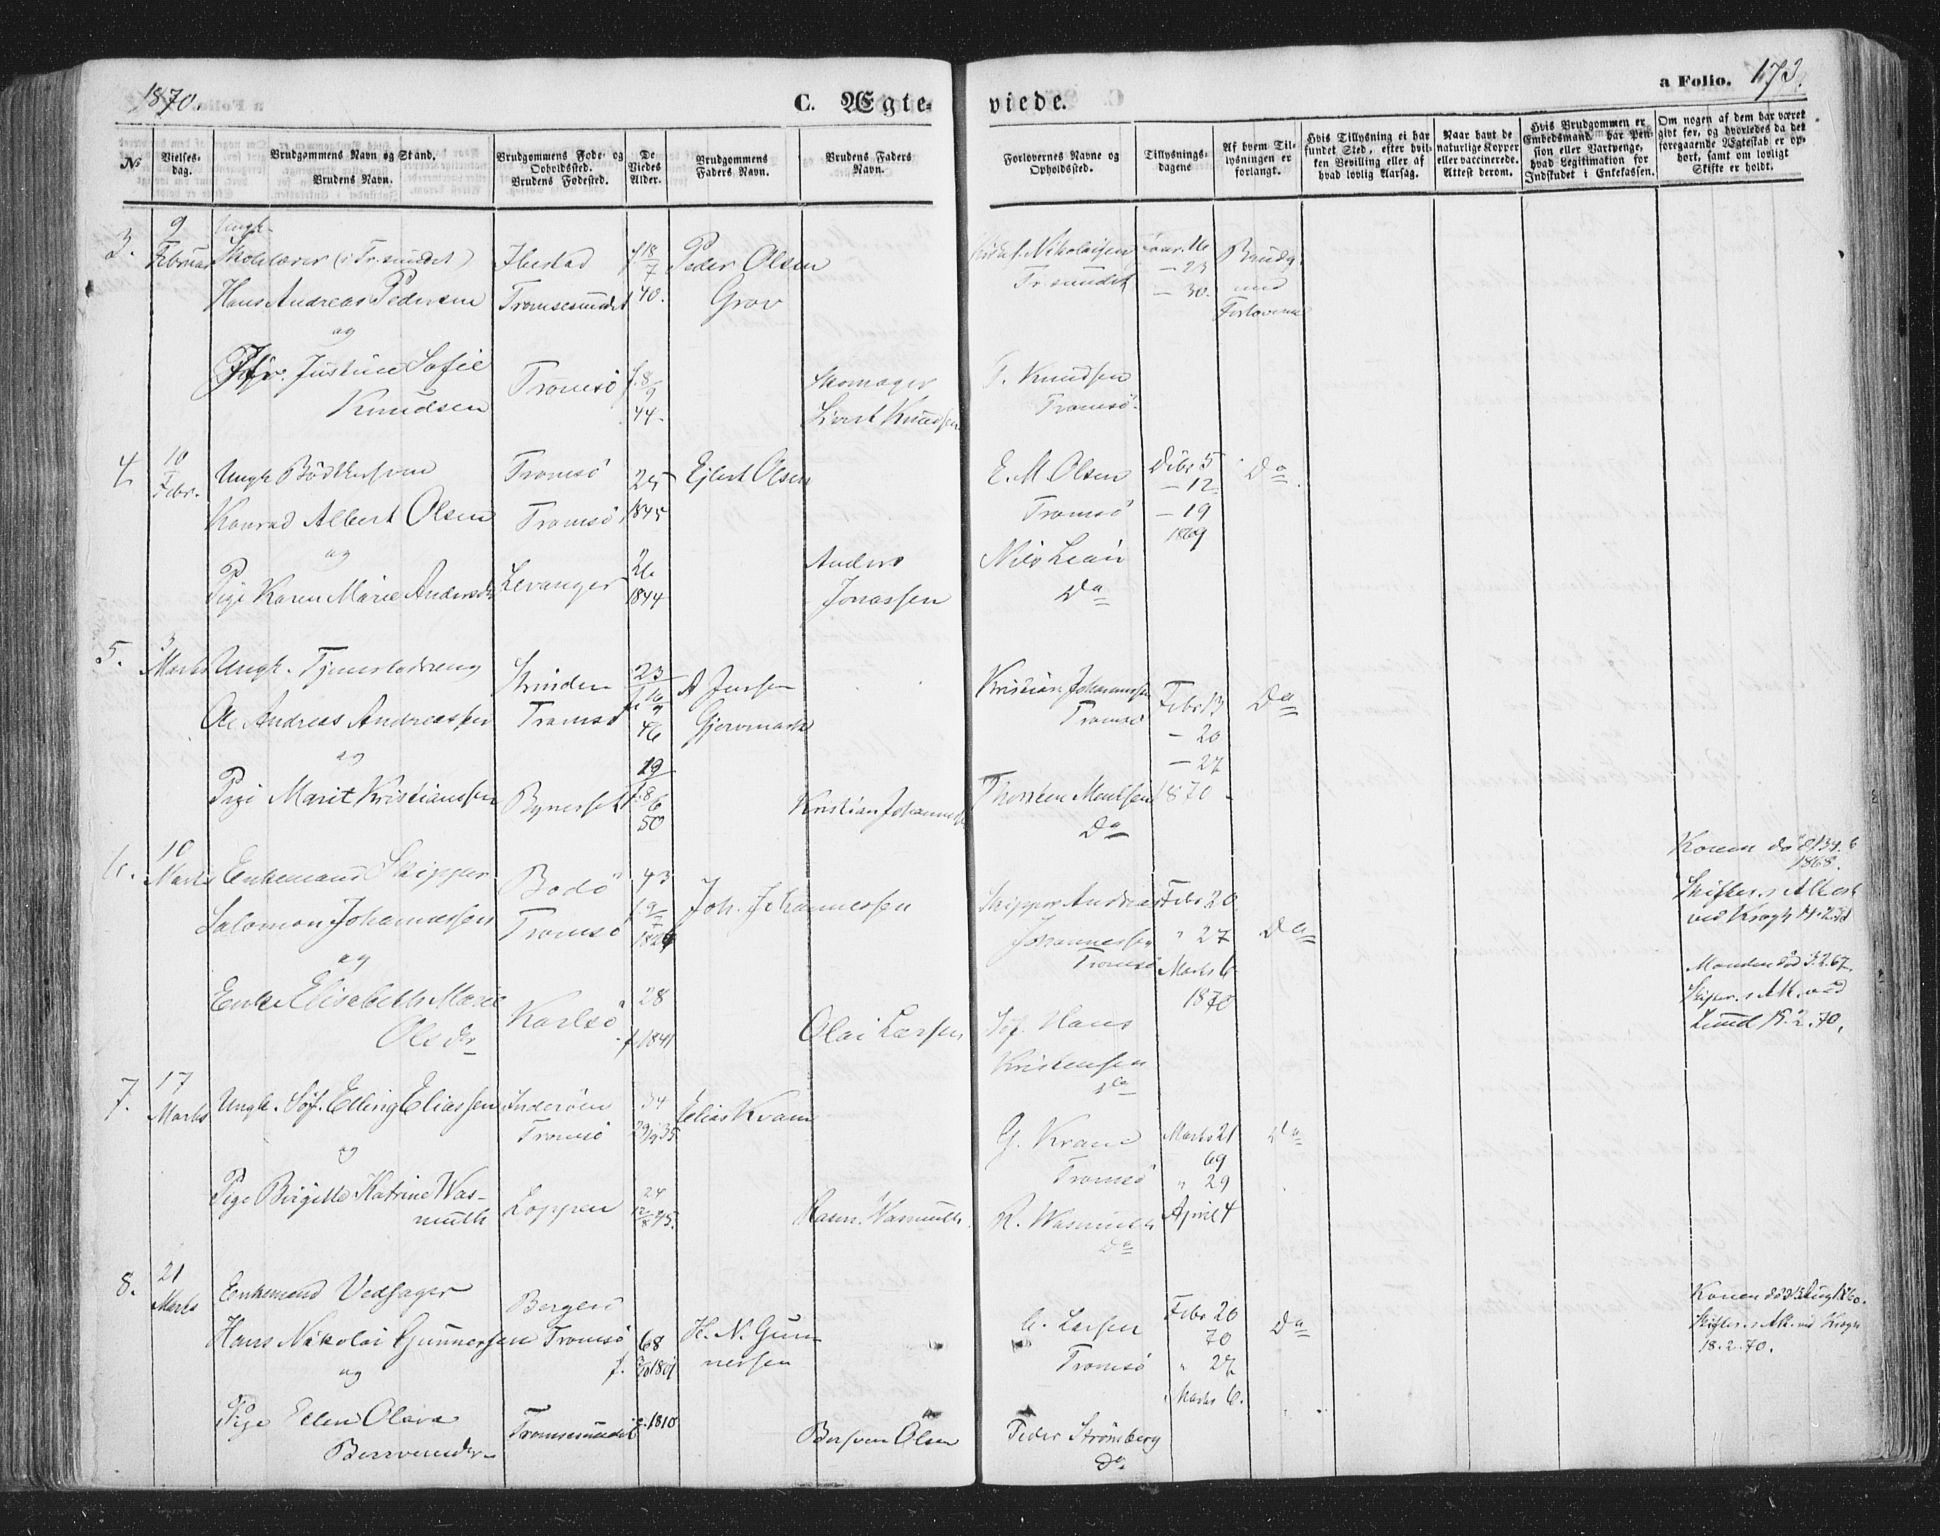 1870.
C. Ægte-
viede.
a Folio. 173.
No
Vielses-
dag.
Brudgommens Navn og Stand.
Brudens Navn.
Brudgommens Føde- og
Opholdssted.
Brudens Fødested.
De
Viedes
Alder.
Brudgommens
Faders Navn.
Brudens Faders
Navn.
Forlovernes Navne og
Opholdssted.
Tillysnings-
dagene
Af hvem Til-
lysningen er
forlangt.
Hvis Tillysning ei har
fundet Sted, efter hvil-
ken Bevilling eller af
hvad lovlig Aarsag.
Naar havt de
naturlige Kopper
eller vaccinerede.
Attest derom.
Hvis Brudgommen er
Embedsmand, har Pen-
sion eller Vartpenge,
hvad Legitimation for
Indskudet i Enkekassen.
Om nogen af dem har været
givt før, og hvorledes da det
foregaaende Ægteskab er op-
hørt, samt om lovligt
Skifte er holdt.
3.
9
Februar
Ungk.
Skolelærer (i Tr.sundet)
Hans Andreas Pedersen
og
Jfr. Justine Sofie
Knudsen
Ibestad
Tromsesundet
Tromsö
f. 18/7
40.
f. 8/9
44.
Peder Olsen
Grov
Skomager
Sivert Knudsen
Nikolaisen
Tr.sundet
T. Knudsen
Tromsö.
Januar 16
— 23
— 30.
Brudg.
med
Forloverne
4.
10
Febr.
Ungk Bödkersven
Konrad Albert Olsen
og
Pige Karen Marie Andersdr
Tromsö
Tromsö
Levanger
25
1845
26
1844
Ejlert Olsen
Anders
Jonassen
E. M. Olsen
Tromsö
Nils
Do
Decbr 5
— 12
— 19
1869
Do
5.
3
Marts
Ungk. Tjenestedreng
Ole Andreas Andreassen
og
Pige Marit Kristianssen
Strinden
Tromsö
Bynesset
23
f. 16/9
46
19
f. 8/6
50
A Jensen
Gjervmark
Kristian Johannessen
Kristian Johannessen
Tromsö
Thorsten Moulsen
Do
Febr 13
— 20
— 27
1870.
Do
6.
10
Marts
Enkemand Skipper
Salomon Johannessen
og
Enke Elisabeth Marie
Olsdr
Bodö
Tromsö
Karlsö
43
f. 9/7
1826
28
f. 1841
Joh. Johannessen
Olai Larsen
Skipper Andreas
Johannessen
Tromsö
Söf. Hans
Kristensen
do
Febr 20
" 27
Marts 6
1870
Do
Konen död
1868.
Skifter. s Attest
ved Krogh
Manden död 3.2.67.
Skifter. s Att. ved
Lund 15.2.70.
7.
17
Marts
Ungk. Söf. Elling Eliassen
og
Pige Birgitte Katrine Was-
muth
Inderöen
Tromsö
Loppen
34
29/9 35
24
12/8 45.
Elias Kvam
Herm. Wasmuth.
G. Kvam
Tromsö
R. Wasmuth
Do
Marts 21
69
" 29
April 4
Do
8.
21
Marts
Enkemand Vedsager
Hans Nikolai Gunnersen
og
Pige Ellen Olava
Bersvendr.
Bergen
Tromsö
Tromsesundet
68
f. 1801
f. 1810
H. N. Gun-
nersen
Bersven Olsen
C. Larsen
Tromsö
Peder Strömberg
Do
Febr 20
70
" 27
Marts 6.
Do
Konen död Aug
Skifter. s Att. ved Krogh
18.2.70.